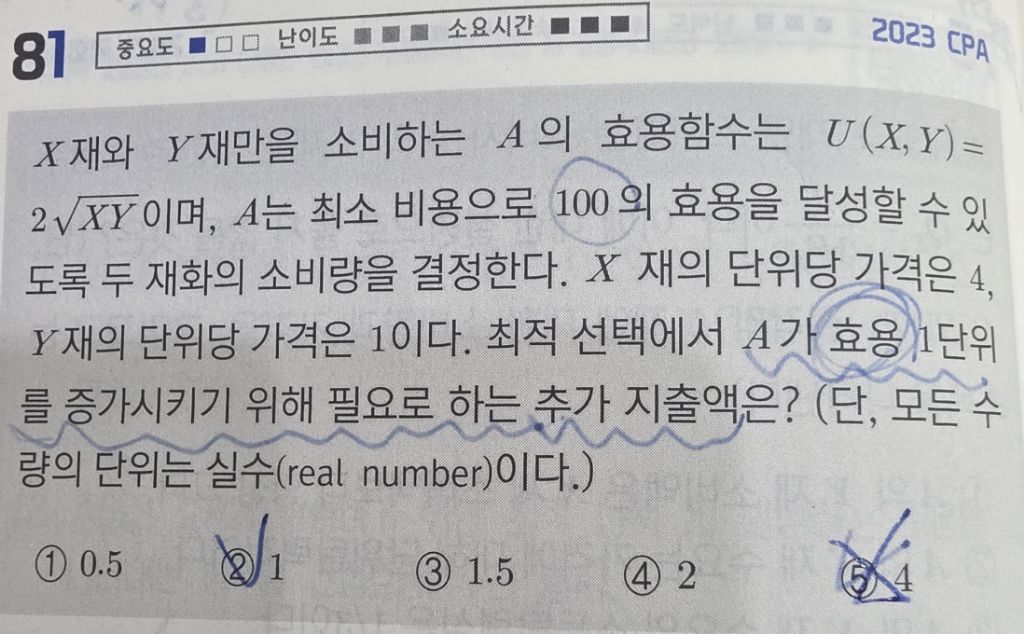 81 중요도 ■□□ 난이도 ■■■ 소요시간 ■■■ 2023 CPA
X재와 Y재만을 소비하는 A의 효용함수는 U(X, Y)=
2√XY이며, A는 최소 비용으로 100의 효용을 달성할 수 있
도록 두 재화의 소비량을 결정한다. X 재의 단위당 가격은 4,
Y재의 단위당 가격은 1이다. 최적 선택에서 A가 효용 1단위
를 증가시키기 위해 필요로 하는 추가 지출액은? (단, 모든 수
량의 단위는 실수(real number)이다.)
① 0.5 ② 1 ③ 1.5 ④ 2 ⑤ 4